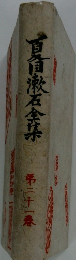 夏目漱石全集
第二十一卷